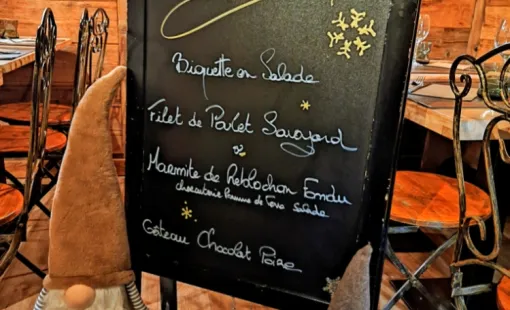 Biquette en Salade
Filet de Poulet Savoyard
ou
Marmite de Reblochon Fondu
charcuterie Pomme de Terre Salade
Gâteau Chocolat Poire